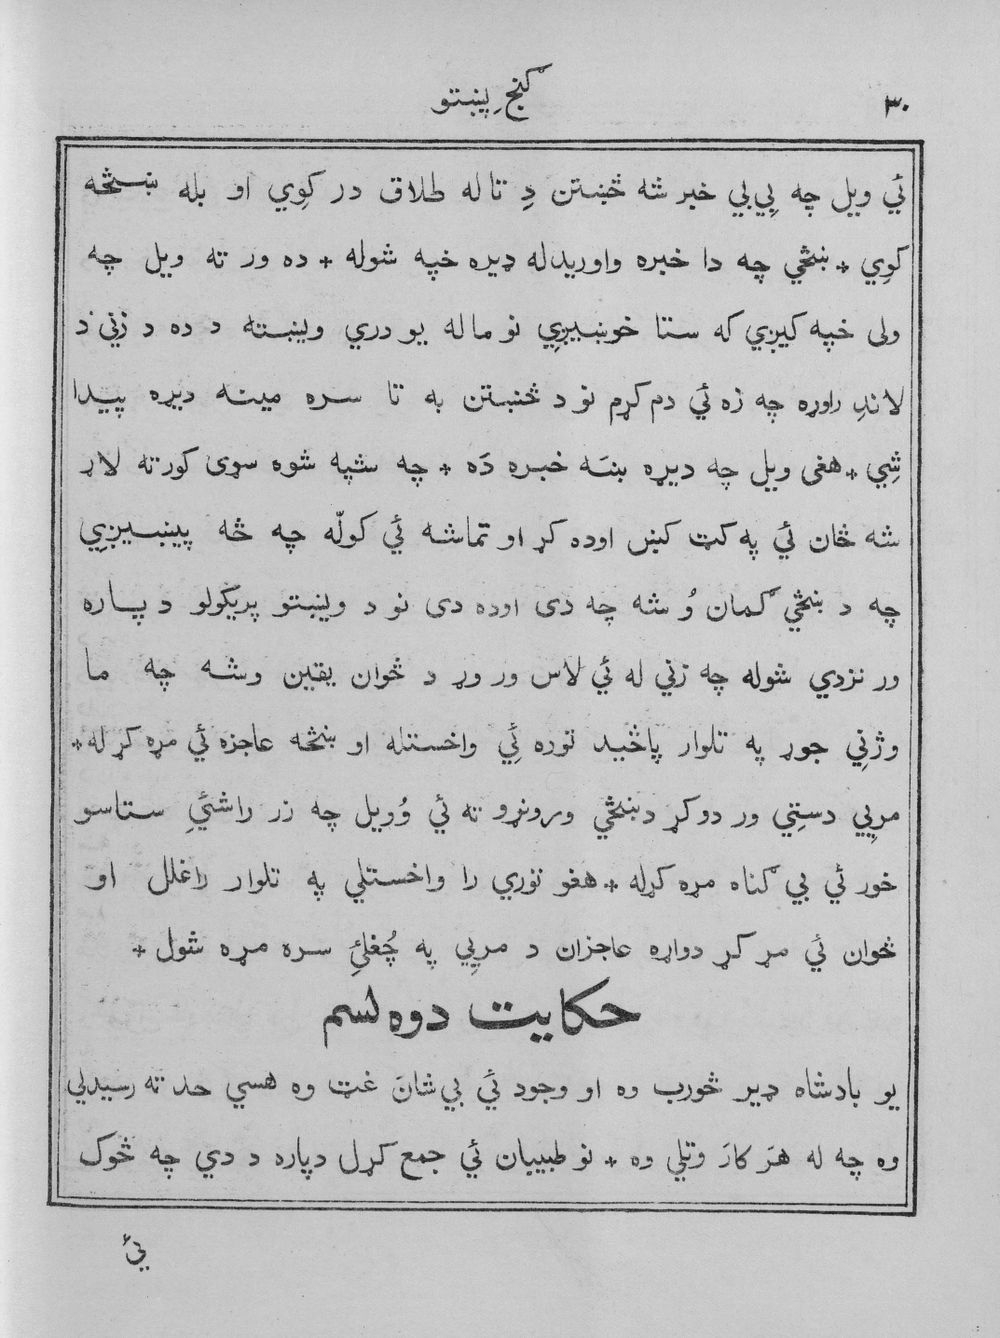 ٣٠
ګنجِ پښتو
ئي ويل چه بِي بي خبر شه څښتن دِ تا له طلاق در کوِي او بله ښڅه
کوِي * ښځي چه دا خبره واوريدله ډيره خپه شوله * ده ور ته ويل چه
ولی خپه کيږي که ستا خوښيږِي نو ما له يو درې ويښته د ده د زني د
لاندِ راوړه چه زه ئي دم کړم نو د څښتن به تا سره مينه ډيره پيدا
شِي * هغی ويل چه ډيره ښه خبره ده * چه شپه شوه سړی کور ته لاړ
شه ځان ئي په کټ کښ اوده کړ او تماشه ئي کولّه چه څه پيښيږِي
چه د ښځي ګمان وُ شه چه دی اوده دی نو د ويښتو پريکولو د پاره
ور نزدي شوله چه زني له ئي لاس ور وړ د ځوان يقين وشه چه ما
وژنِي جوړ په تلوار پاڅيد توره ئي واخستله او ښڅه عاجزه ئي مړه کړله *
مرِيي دستِي ور دو کړ د ښځي ورونړو ته ئي وُويل چه زر راشئِي ستاسو
خور ئي بي ګناه مړه کړله * هغو توري را واخستلي په تلوار راغلل او
ځوان ئي مړ کړ دواړه عاجزان د مريِي په چُغلئِ سره مړه شول *
حکايت دوه لسم
يو بادشاه ډير څورب وه او وجود ئي بي شانَ غټ وه هسي حد ته رسيدلي
وه چه له هرَ کارَ وتلي وه * نو طبيبان ئي جمع کړل دپاره د دي چه څوک
ئي